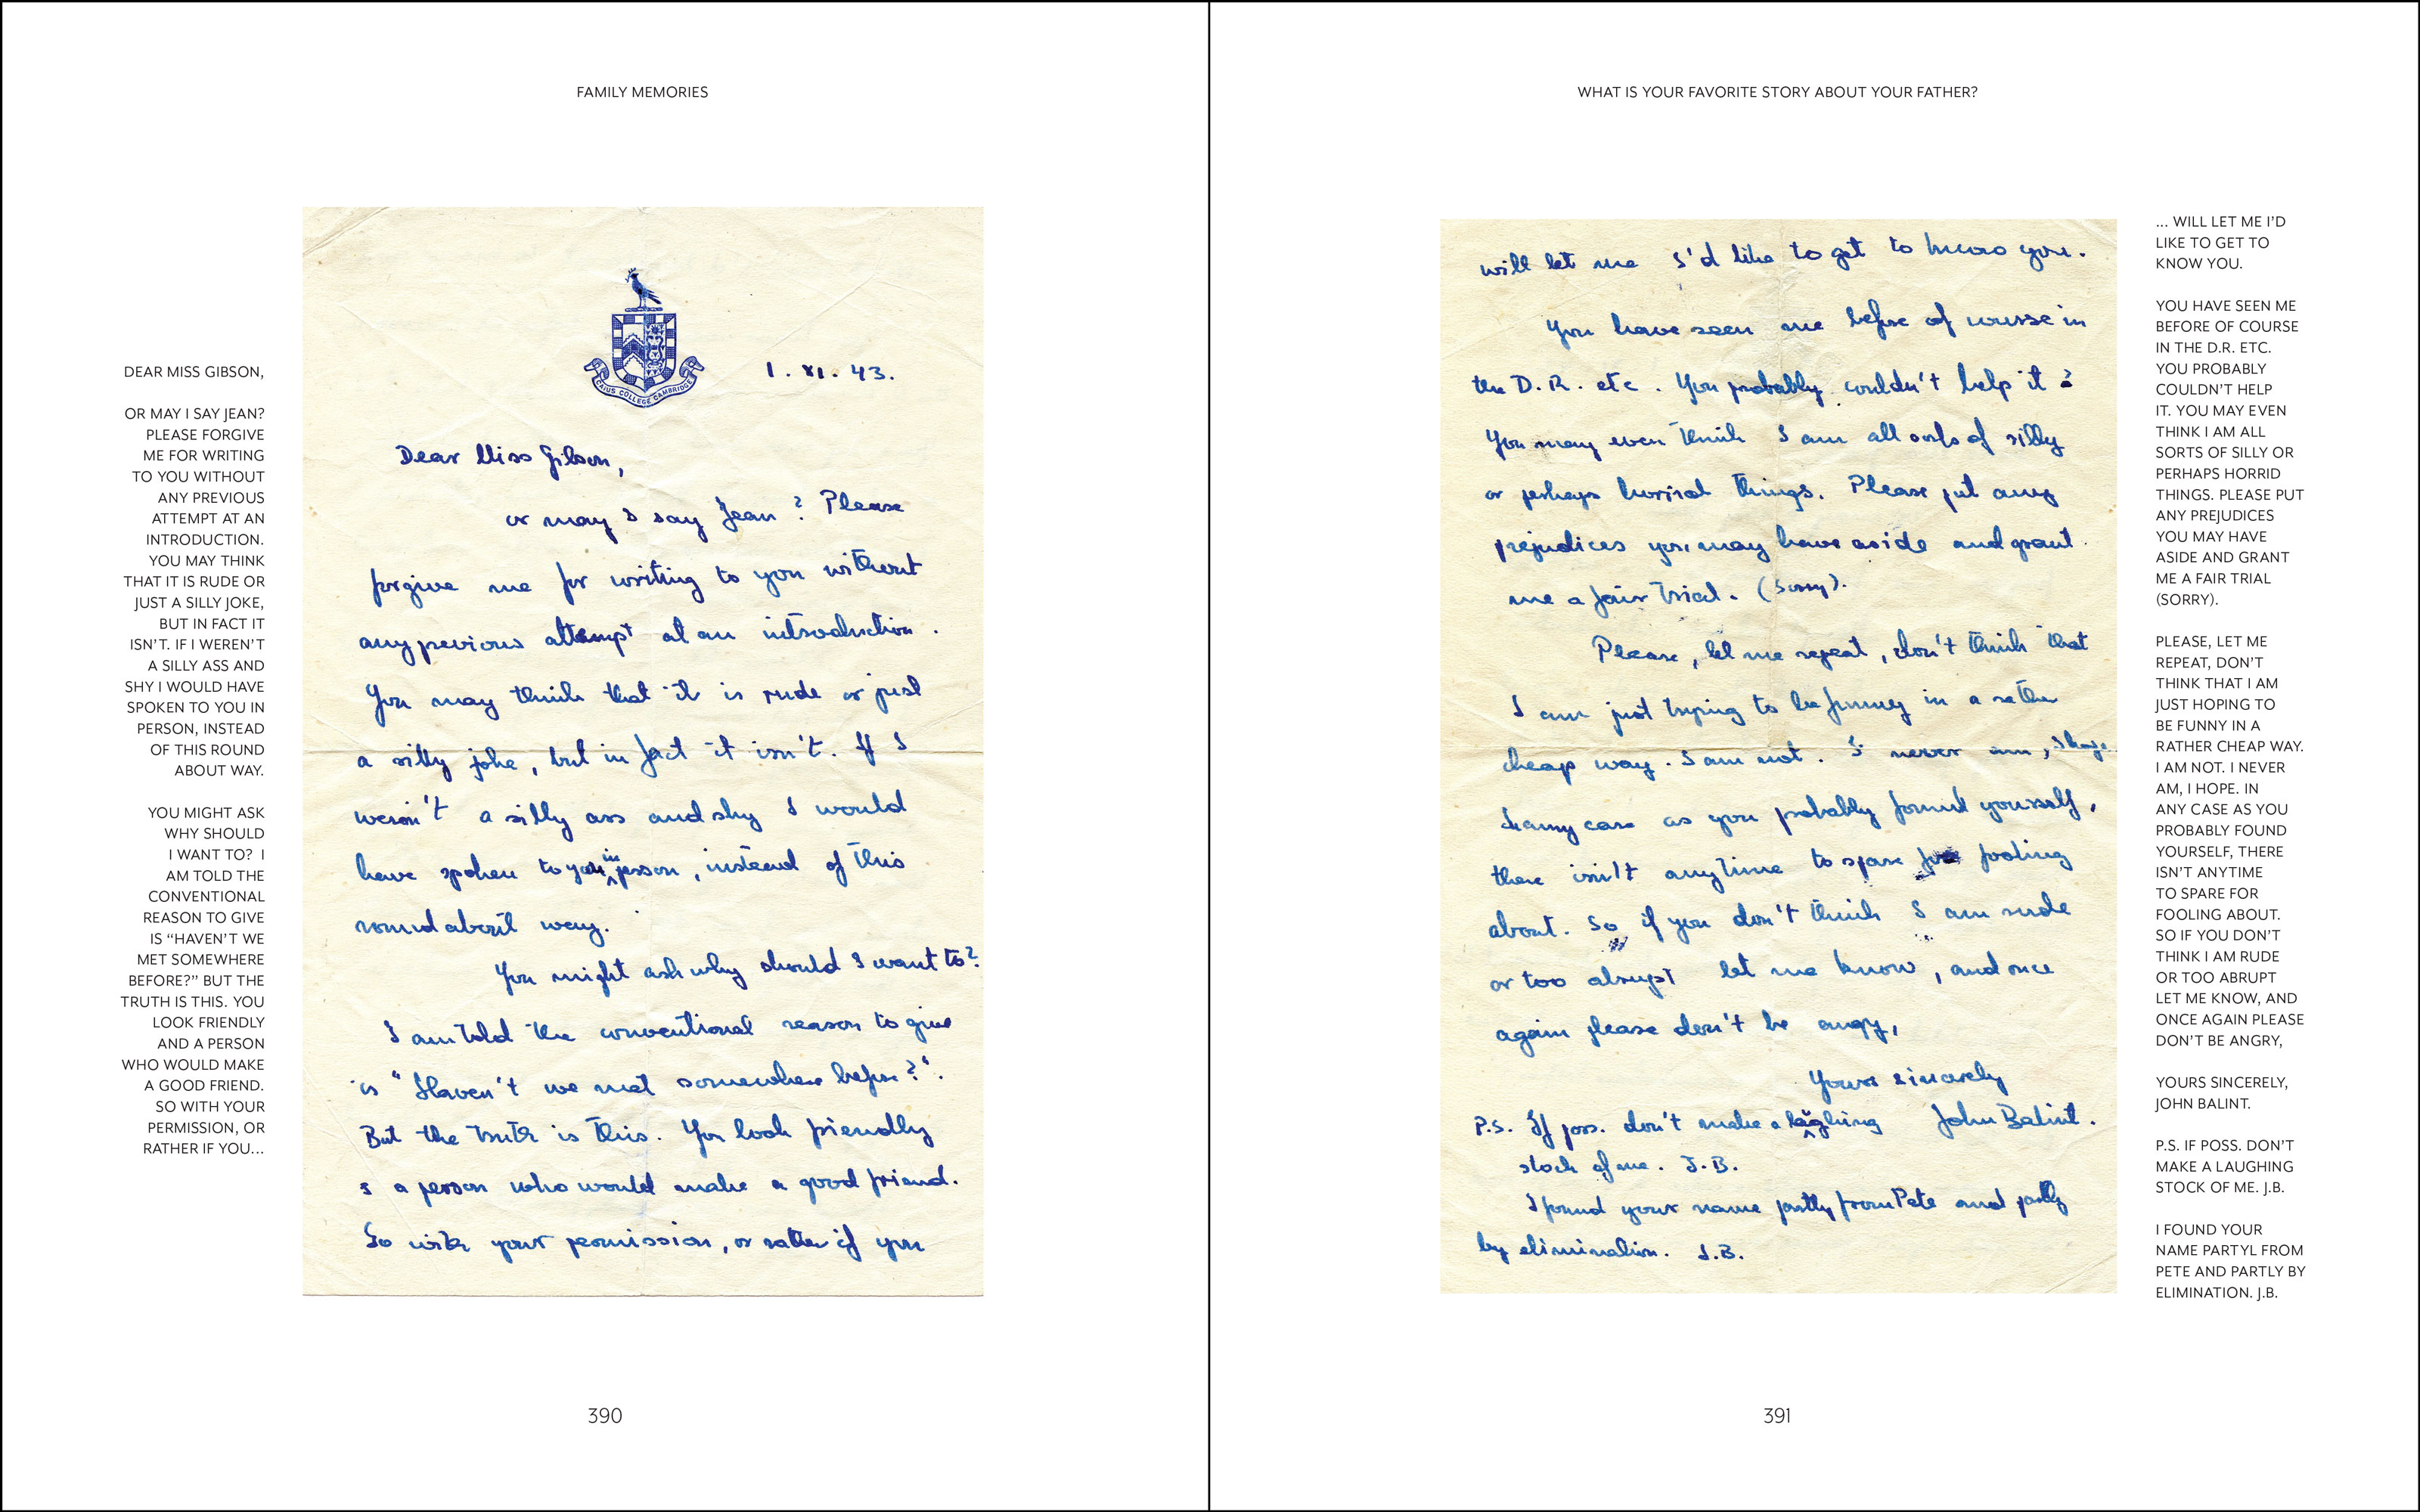 FAMILY MEMORIES
DEAR MISS GIBSON,
OR MAY I SAY JEAN?
PLEASE FORGIVE
ME FOR WRITING
TO YOU WITHOUT
ANY PREVIOUS
ATTEMPT AT AN
INTRODUCTION.
YOU MAY THINK
THAT IT IS RUDE OR
JUST A SILLY JOKE,
BUT IN FACT IT
ISN'T. IF I WEREN'T
A SILLY ASS AND
SHY I WOULD HAVE
SPOKEN TO YOU IN
PERSON, INSTEAD
OF THIS ROUND
ABOUT WAY.
YOU MIGHT ASK
WHY SHOULD
I WANT TO? I
AM TOLD THE
CONVENTIONAL
REASON TO GIVE
IS “HAVEN'T WE
MET SOMEWHERE
BEFORE?” BUT THE
TRUTH IS THIS. YOU
LOOK FRIENDLY
AND A PERSON
WHO WOULD MAKE
A GOOD FRIEND.
SO WITH YOUR
PERMISSION, OR
RATHER IF YOU...
CAIUS COLLEGE CAMBRIDGE
1. XI. 43.
Dear Miss Gibson,
or may I say Jean? Please
forgive me for writing to you without
any previous attempt at an introduction.
You may think that it is rude or just
a silly joke, but in fact it isn't. If I
weren't a silly ass and shy I would
have spoken to you in person, instead of this
round about way.
You might ask why should I want to?
I am told the conventional reason to give
is "Haven't we met somewhere before?".
But the truth is this. You look friendly
& a person who would make a good friend.
So with your permission, or rather if you
390
WHAT IS YOUR FAVORITE STORY ABOUT YOUR FATHER?
will let me I'd like to get to know you.
You have seen me before of course in
the D.R. etc. You probably couldn't help it.
You may even think I am all sorts of silly
or perhaps horrid things. Please put any
prejudices you may have aside and grant
me a fair trial. (Sorry).
Please, let me repeat, don't think that
I am just trying to be funny in a rather
cheap way. I am not. I never am, I hope.
In any case as you probably found yourself,
there isn't any time to spare for fooling
about. So if you don't think I am rude
or too abrupt let me know, and once
again please don't be angry,
Yours sincerely
John Balint.
P.S. If poss. don't make a laughing
stock of me. J.B.
I found your name partly from Pete and partly
by elimination. J.B.
... WILL LET ME I'D
LIKE TO GET TO
KNOW YOU.
YOU HAVE SEEN ME
BEFORE OF COURSE
IN THE D.R. ETC.
YOU PROBABLY
COULDN'T HELP
IT. YOU MAY EVEN
THINK I AM ALL
SORTS OF SILLY OR
PERHAPS HORRID
THINGS. PLEASE PUT
ANY PREJUDICES
YOU MAY HAVE
ASIDE AND GRANT
ME A FAIR TRIAL
(SORRY).
PLEASE, LET ME
REPEAT, DON'T
THINK THAT I AM
JUST HOPING TO
BE FUNNY IN A
RATHER CHEAP WAY.
I AM NOT. I NEVER
AM, I HOPE. IN
ANY CASE AS YOU
PROBABLY FOUND
YOURSELF, THERE
ISN'T ANYTIME
TO SPARE FOR
FOOLING ABOUT.
SO IF YOU DON'T
THINK I AM RUDE
OR TOO ABRUPT
LET ME KNOW, AND
ONCE AGAIN PLEASE
DON'T BE ANGRY,
YOURS SINCERELY,
JOHN BALINT.
P.S. IF POSS. DON'T
MAKE A LAUGHING
STOCK OF ME. J.B.
I FOUND YOUR
NAME PARTYL FROM
PETE AND PARTLY BY
ELIMINATION. J.B.
391